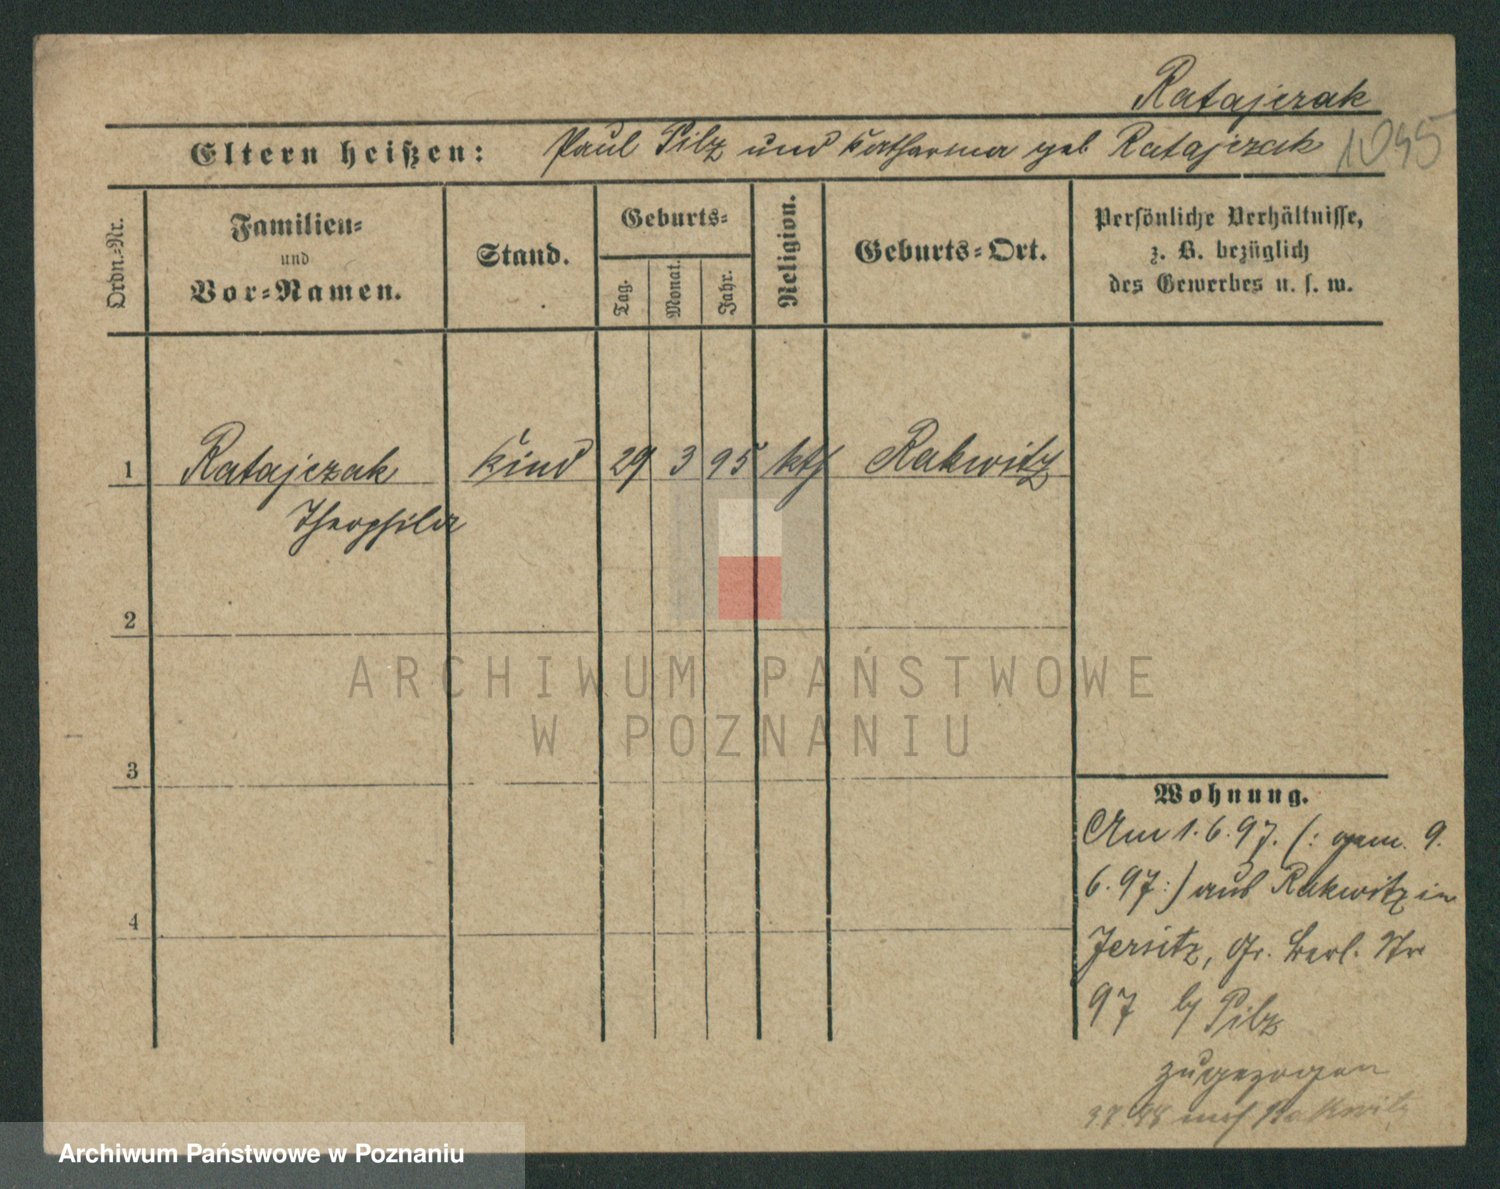 Ratajczak
Eltern heißen: Paul Pilz und Katharina geb Ratajczak
Ordn.-Nr.
Familien-
und
Vor-Namen.
Stand.
Geburts-
Tag.
Monat.
Jahr.
Religion.
Geburts-Ort.
Persönliche Verhältnisse,
z. B. bezüglich
des Gewerbes u. s. w.
1 Ratajczak Kind 29 3 95 kth Rakwitz
Theophila
2
3
4
ARCHIWUM PAŃSTWOWE
W POZNANIU
Wohnung.
Am 1.6.97. (: gem. 9.
6.97:) aus Rakwitz in
Jersitz, Gr. Berl. Str
97 b/ Pilz
zugezogen
nach Rakwitz
Archiwum Państwowe w Poznaniu